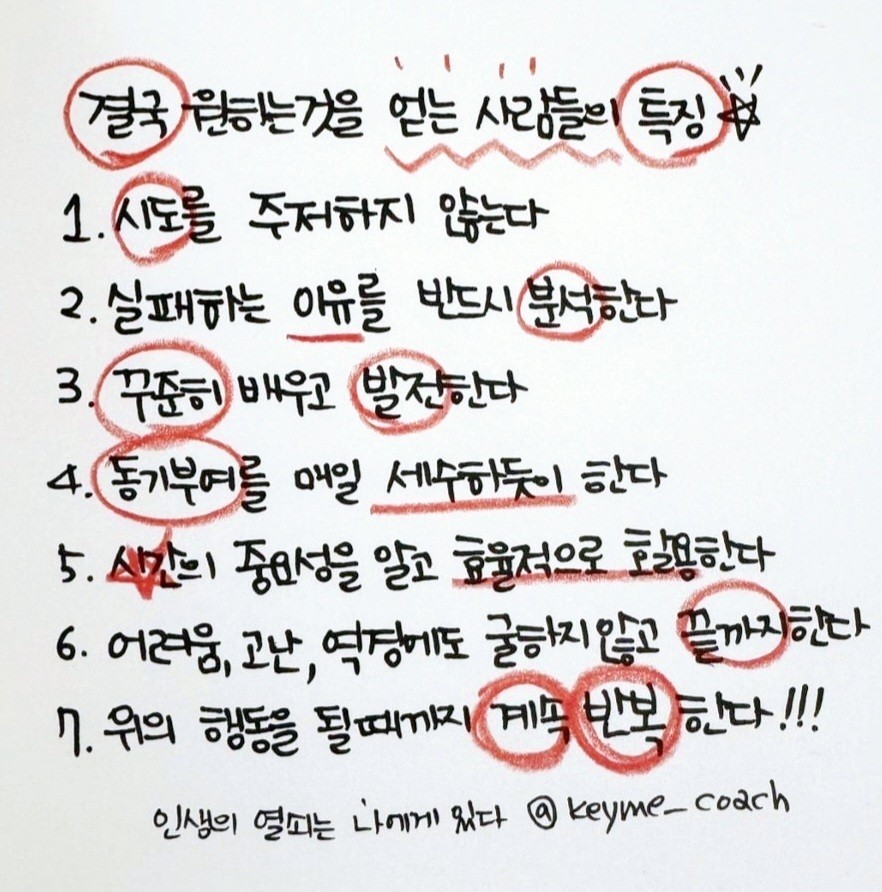 결국 원하는것을 얻는 사람들의 특징
1. 시도를 주저하지 않는다
2. 실패하는 이유를 반드시 분석한다
3. 꾸준히 배우고 발전한다
4. 동기부여를 매일 세수하듯이 한다
5. 시간의 중요성을 알고 효율적으로 활용한다
6. 어려움, 고난, 역경에도 굴하지않고 끝까지한다
7. 위의 행동을 될때까지 계속 반복한다!!!
인생의 열쇠는 나에게 있다 @keyme_coach